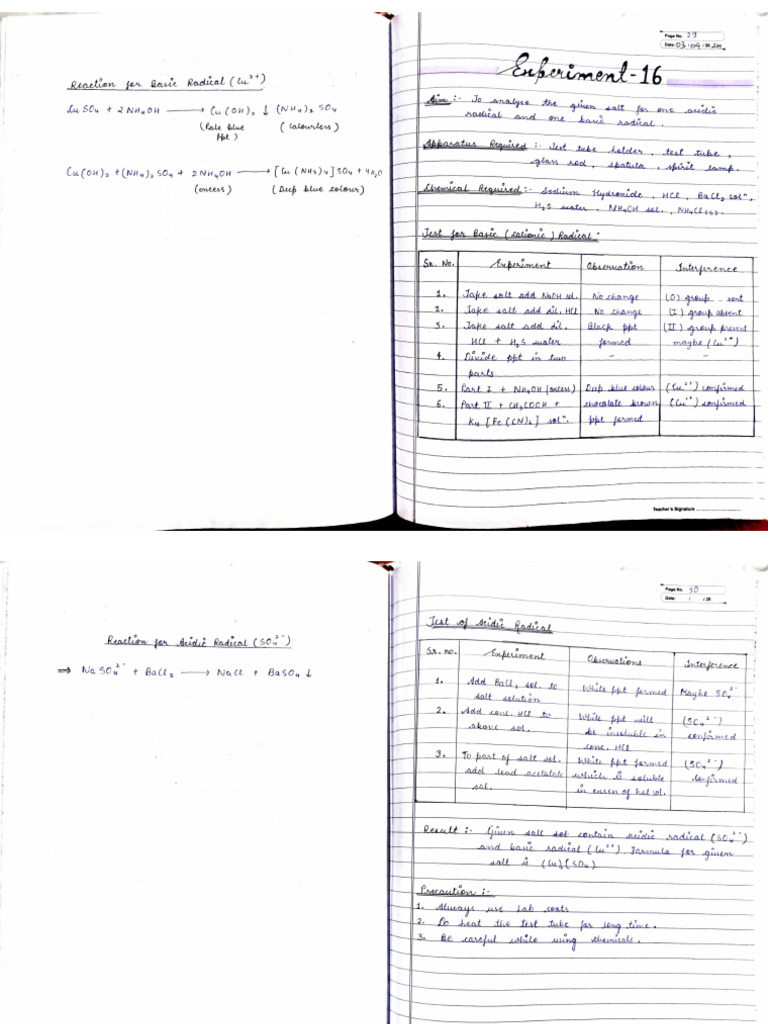 Reaction for Basic Radical (Cu²⁺)
CuSO₄ + 2NH₄OH ⟶ Cu(OH)₂ ↓ (NH₄)₂ SO₄
(Pale blue ppt) (Colourless)
Cu(OH)₂ + (NH₄)₂ SO₄ + 2NH₄OH ⟶ [Cu(NH₃)₄]SO₄ + 4H₂O
(excess) (Deep blue colour)
Page No. 29
Date: 03/09/20
Experiment-16
Aim :- To analyse the given salt for one acidic
radical and one basic radical.
Apparatus Required :- Test tube holder, test tube,
glass rod, spatula, spirit lamp.
Chemical Required :- Sodium Hydroxide, HCl, BaCl₂ solⁿ,
H₂S water, NH₄OH sol., NH₄Cl(s).
Test for Basic (cationic) Radical :
Sr. No. Experiment Observation Interference
1. Take salt add NaOH sol. No change (0) group
2. Take salt add dil. HCl No change (I) group absent
3. Take salt add dil. Black ppt (II) group present
HCl + H₂S water formed maybe (Cu²⁺)
4. Divide ppt in two - -
parts
5. Part I + NH₄OH (excess) Deep blue colour (Cu²⁺) confirmed
6. Part II + CH₃COOH + chocolate brown (Cu²⁺) confirmed
K₄ [Fe(CN)₆] solⁿ. ppt formed
Teacher's Signature
Reaction for Acidic Radical (SO₄²⁻)
⇒ NaSO₄²⁻ + BaCl₂ ⟶ NaCl + BaSO₄↓
Page No. 30
Date: / / 20
Test of Acidic Radical
Sr. no. Experiment Observations Interference
1. Add BaCl₂ sol. to White ppt formed Maybe SO₄²⁻
salt solution
2. Add conc. HCl to White ppt will (SO₄²⁻)
above sol. be insoluble in confirmed
conc. HCl
3. To part of salt sol. White ppt formed (SO₄²⁻)
add lead acetate which is soluble confirmed
sol. in excess of hot sol.
Result :- Given salt sol contain acidic radical (SO₄²⁻)
and basic radical (Cu²⁺). Formula for given
salt is (Cu)(SO₄)
Precaution :-
1. Always use Lab coats
2. Do heat the test tube for long time.
3. Be careful while using chemicals.